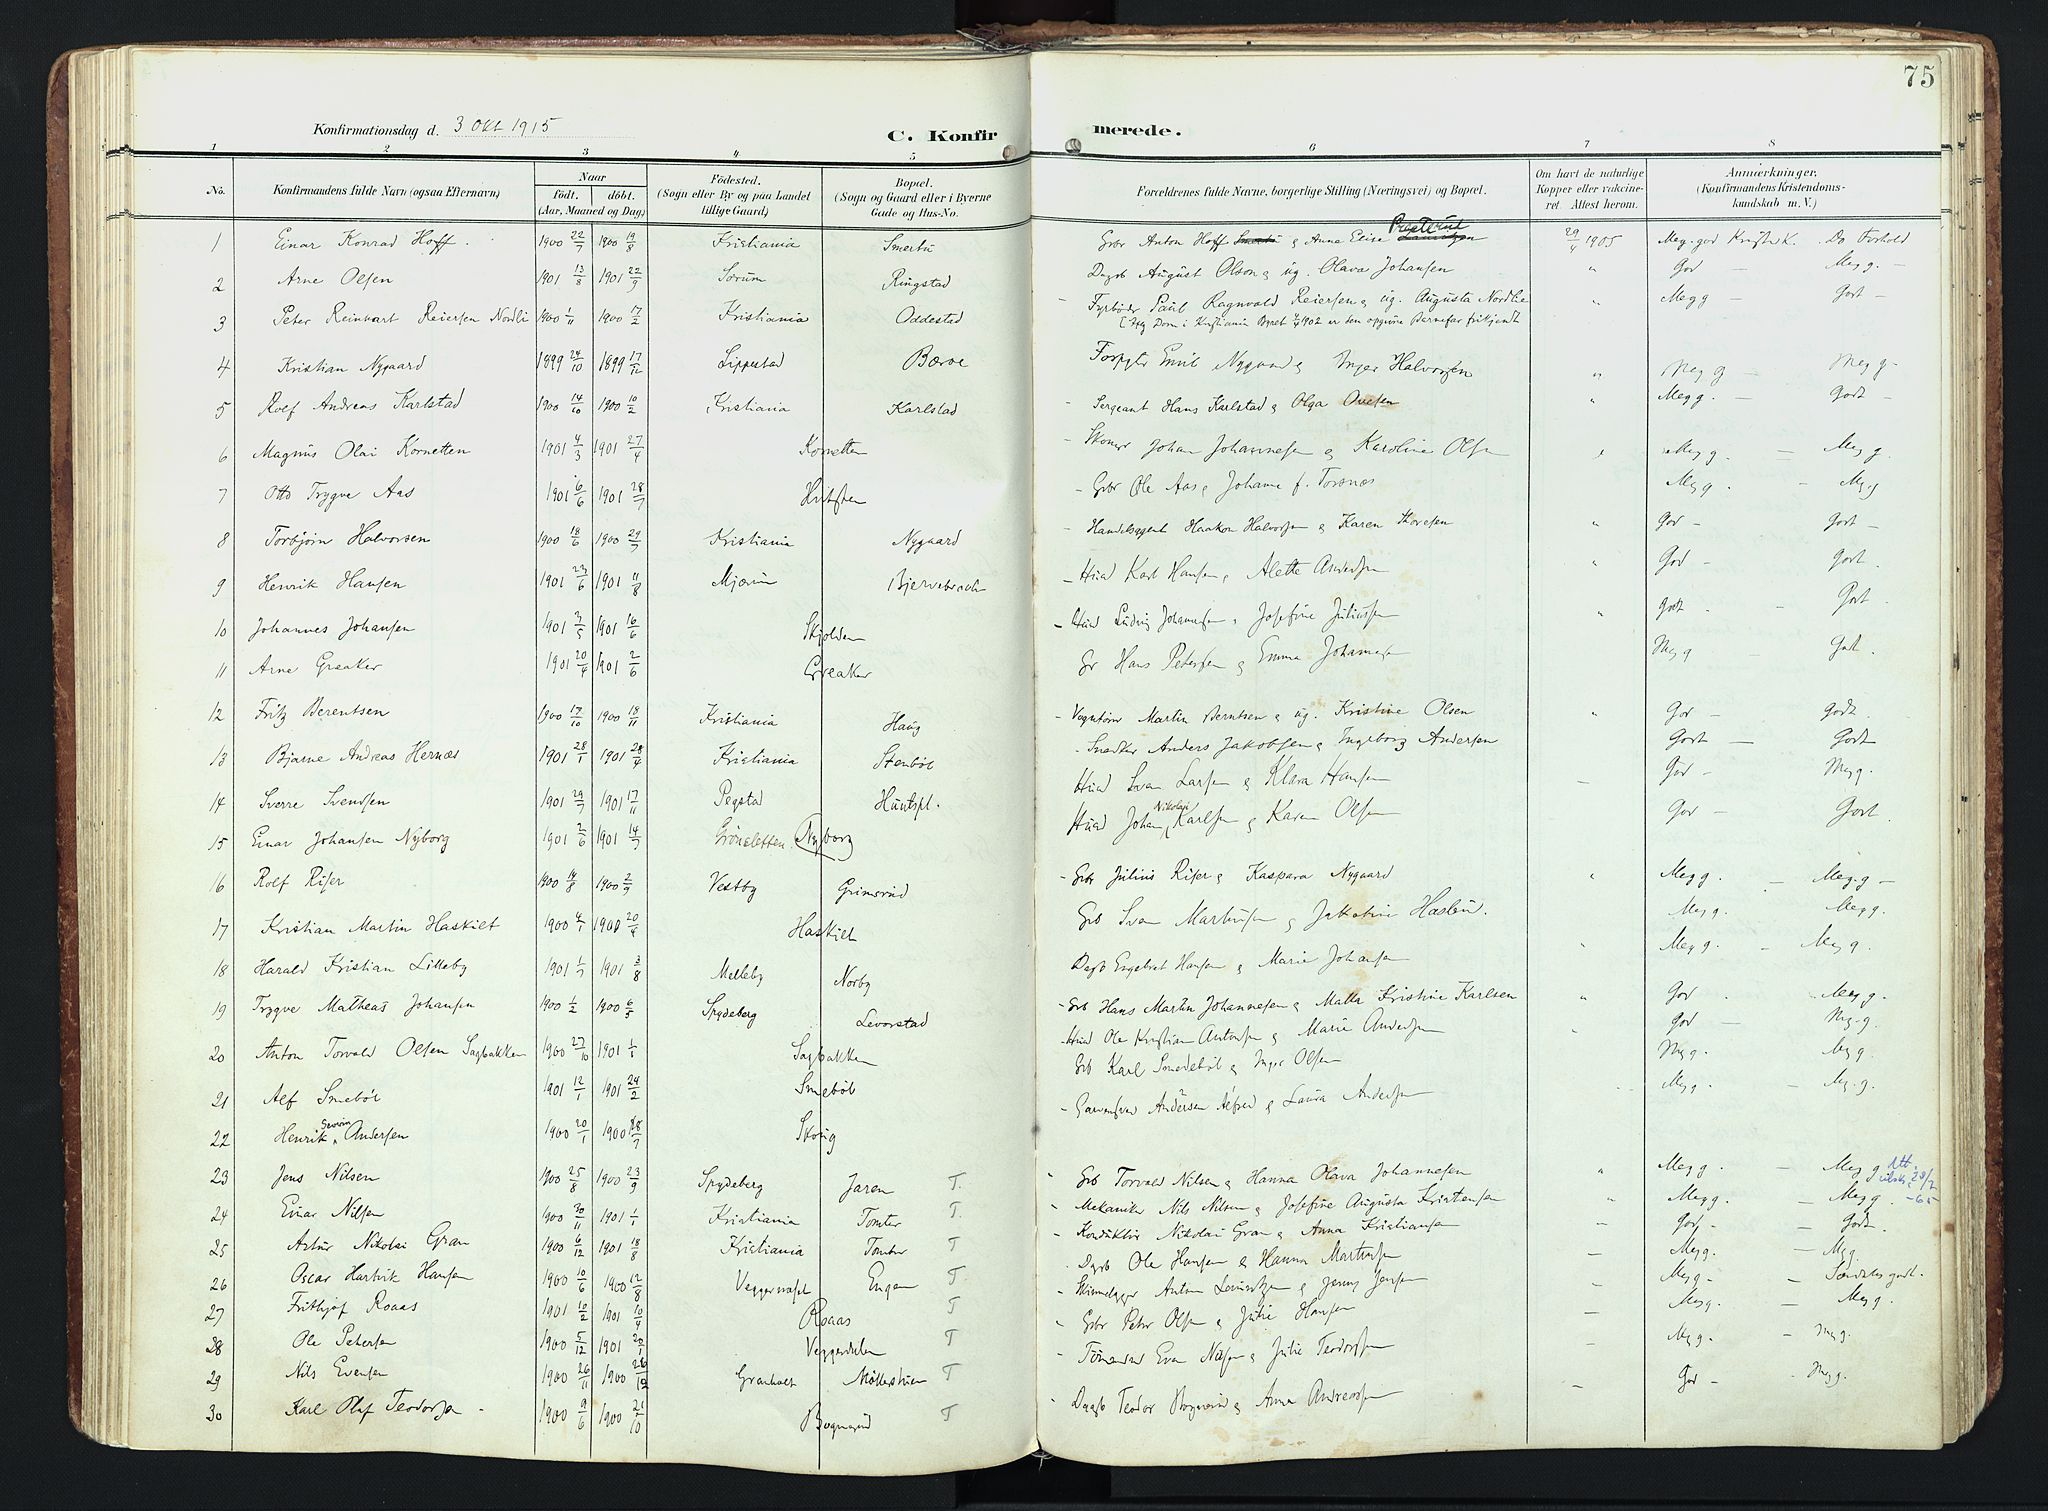 75
Konfirmationsdag d. 3 Okt 1915
C. Konfirmerede.
1 2 3 4 5 6 7 8
No. Konfirmandens fulde Navn (ogsaa Efternavn) Naar født. døbt. (Aar, Maaned og Dag) Födested. (Sogn eller By og paa Landet tillige Gaard) Bopæl. (Sogn og Gaard eller i Byerne Gade og Hus-No. Forældrenes fulde Navne, borgerlige Stilling (Næringsvei) og Bopæl. Om havt de naturlige Kopper eller vakcineret. Attest herom. Anmærkninger. (Konfirmandens Kristendomskundskab m. V.)
1 Einar Konrad Hoff. 1900 22/7 1900 19/8 Kristiania Smertu Gbr Anton Hoff & Anna Elise 29/4 1905 Meg. god Krist. K. Do Forhold
2 Arne Olsen 1901 13/8 1901 22/9 Sørum Ringstad Dagb August Olson & ug. Olava Johansen " God — Meg g. —
3 Peter Reinhart Reiersen Nordli 1900 1/11 1900 17/2 Kristiania Oddestad Fyrbøder Paul Ragnvald Reiersen & ug. Augusta Nordlie " Meg g — Godt —
Dom i Kristiania Byret 1902 er den opgivne Barnefar frikjendt
4 Kristian Nygaard 1899 24/10 1899 17/12 Lippestad Bærøe Forpgter Emil Nygaard & Inger Halvorsen " Meg g — Meg g-
5 Rolf Andreas Karlstad 1900 14/10 1900 10/2 Kristiania Karlstad Sergeant Hans Karlstad & Olga Ovesen " Meg g. — Godt -
6 Magnus Olai Kornetten 1901 4/3 1901 27/4 Kornetten Skomgr Johan Johannesen & Karoline Olsen " Meg g. — Meg g.
7 Otto Trygve Aas 1901 6/6 1901 28/7 Hvitsten Gbr Ole Aas & Johanne f. Torsnes Meg g. - Meg g
8 Torbjørn Halvorsen 1900 18/6 1900 29/7 Kristiania Nygaard Handelsagent Haakon Halvorsen & Karen Thoresen " God — Godt —
9 Henrik Hansen 1901 23/6 1901 11/8 Mjærum Bjervebrach Husd Karl Hansen & Alette Andersen " God — Godt.
10 Johannes Johansen 1901 3/5 1901 16/6 Skjolden Husd Ludvig Johannesen & Josefine Juliussen " Godt — Godt
11 Arne Greaker 1901 20/4 1901 2/6 Greaker Gr Hans Petersen & Emma Johannesen Meg g — Godt.
12 Fritz Berentsen 1900 17/10 1900 18/11 Kristiania Haug Vognfører Martin Berntsen & ug. Kristine Olsen " God — Godt.
13 Bjarne Andreas Hernæs 1901 28/1 1901 28/4 Kristiania Stenbøl Snedker Anders Jakobsen & Ingeborg Andersen Godt — Godt
14 Sverre Svendsen 1901 29/7 1901 17/11 Pegstad Huntspl. Husd Sven Larsen & Klara Hansen — God — Meg g.
15 Einar Johansen Nyborg 1901 2/6 1901 14/7 Grønsletten Nyborg Husd Johan Nikolai Karlsen & Karen Olsen God — Godt
16 Rolf Riser 1900 14/8 1900 2/9 Vestby Grimsrud Gbr Julius Riser & Kaspara Nygaard " Meg g. — Meg. g —
17 Kristian Martin Haskiel 1900 4/1 1900 20/4 Haskiel Gb Sven Martinsen & Jakobine Haslund. Meg g. Meg g.
18 Harald Kristian Lilleby 1901 1/7 1901 3/8 Melleby Norby Dagb Engebret Hansen & Marie Johansen Meg g. — Meg g.
19 Trygve Mathæas Johansen 1900 1/2 1900 6/5 Spydeberg Levorstad Gb Hans Martin Johannesen & Malla Kristine Karlsen " God - Meg g.
20 Anton Torvald Olsen Sagbakken 1900 27/10 1901 1/1 Sagbakken Husd Ole Kristian Antonsen & Marie Andersen " God — Meg. g.
21 Alf Smebøl 1901 12/1 1901 24/2 Smebøl Gb Karl Smedebøl & Inger Olsen Meg g. Meg g.
22 Henrik Severin Andersen 1900 20/1 1900 18/7 Skoug Andersen Alfred & Laura Andersen Meg g. — Meg. g.
23 Jens Nilsen 1900 25/8 1900 23/9 Spydeberg Jaren T. Gb Torvald Nilsen & Hanna Olava Johannesen " Meg g. — Meg g Att. utst. 28/7 -65
24 Einar Nilsen 1900 30/11 1901 1/1 Kristiania Tomter T. Mekaniker Nils Nilsen & Josefine Augusta Kristensen " Meg g. — Meg g.
25 Artur Nikolai Gran 1900 6/12 1901 18/8 Kristiania Tomter T Konduktør Nikolai Gran & Anna Kristiansen — God — Godt.
26 Oscar Hartvik Hansen 1900 10/6 1900 12/8 Engen T. Dagb Ole Hansen & Hanna Martinsen — Meg g. — Meg.
27 Frithjof Roaas 1901 10/2 1901 10/4 Roaas T Anton Levinsen & Jenny Jensen — Meg g- — Særdeles godt.
28 Ole Petersen 1900 5/12 1901 22/1 Veggerdalen T Gbr Peter Olsen & Julie Hansen — Meg g. — Meg g.
29 Nils Evensen 1900 26/11 1900 26/12 Granholt Møllerstuen T Tømmermd Even Nilsen & Julie Teodorsen — Meg g. — Meg g.
30 Karl Olaf Teodorsen - 1900 9/6 1900 21/10 Bognerud T Dagb Teodor Bognerud & Anna Andreassen — God — Meg g.